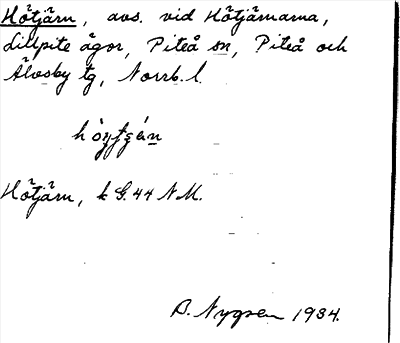 Hötjärn, avs. vid Hötjärnarna,
Lillpite ägor, Piteå sn, Piteå och
Älvsby tg, Norrb. l.
Hötjärn, k G. 44 N M.
D. Nygren 1934.